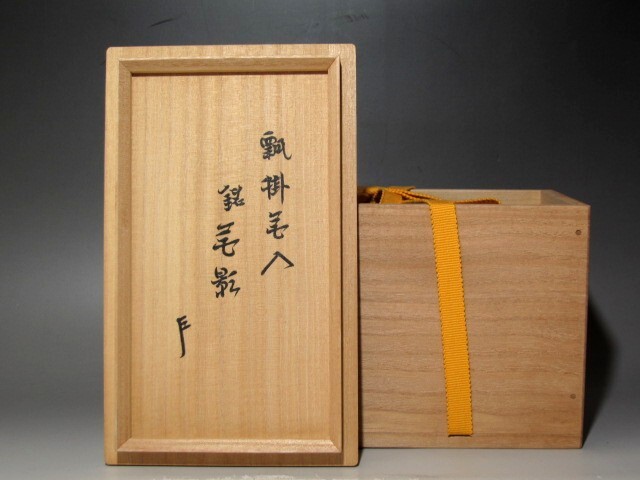 瓢掛花入
銘花影